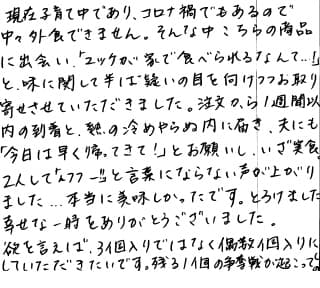 現在子育て中であり、コロナ禍でもあるので
中々外食できません。そんな中こちらの商品
に出会い、「エッグが家で食べられるなんて…!」
と、味に関して半ば疑いの目を向けつつお取り
寄せさせていただきました。注文から1週間以
内の到着と、熱の冷めやらぬ内に届き、夫にも
「今日は早く帰ってきて!」とお願いし、いざ実食。
2人して「んフフー」と言葉にならない声が上がり
ました…本当に美味しかったです。とろけました
幸せな一時をありがとうございました。
欲を言えば、3個入りではなく偶数個入りに
していただきたいです。残る1個の争奪戦が起こって